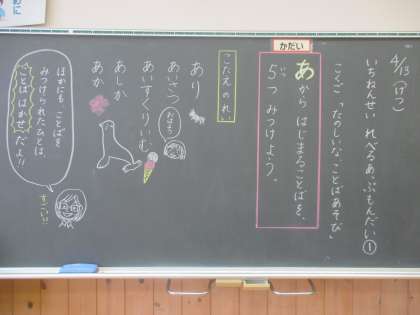 4/13(げつ)
いちねんせい れべるあっぷもんだい①
こくご「たのしいな、ことばあそび」
かだい
あから はじまることばを、
5つ みつけよう。
こたえの れい
あり
あいさつ
おはよう
あいすくりいむ
あしか
あか
ほかにも、ことばを
みつけられたひとは、
ことばはかせだよ!!
すごい!!